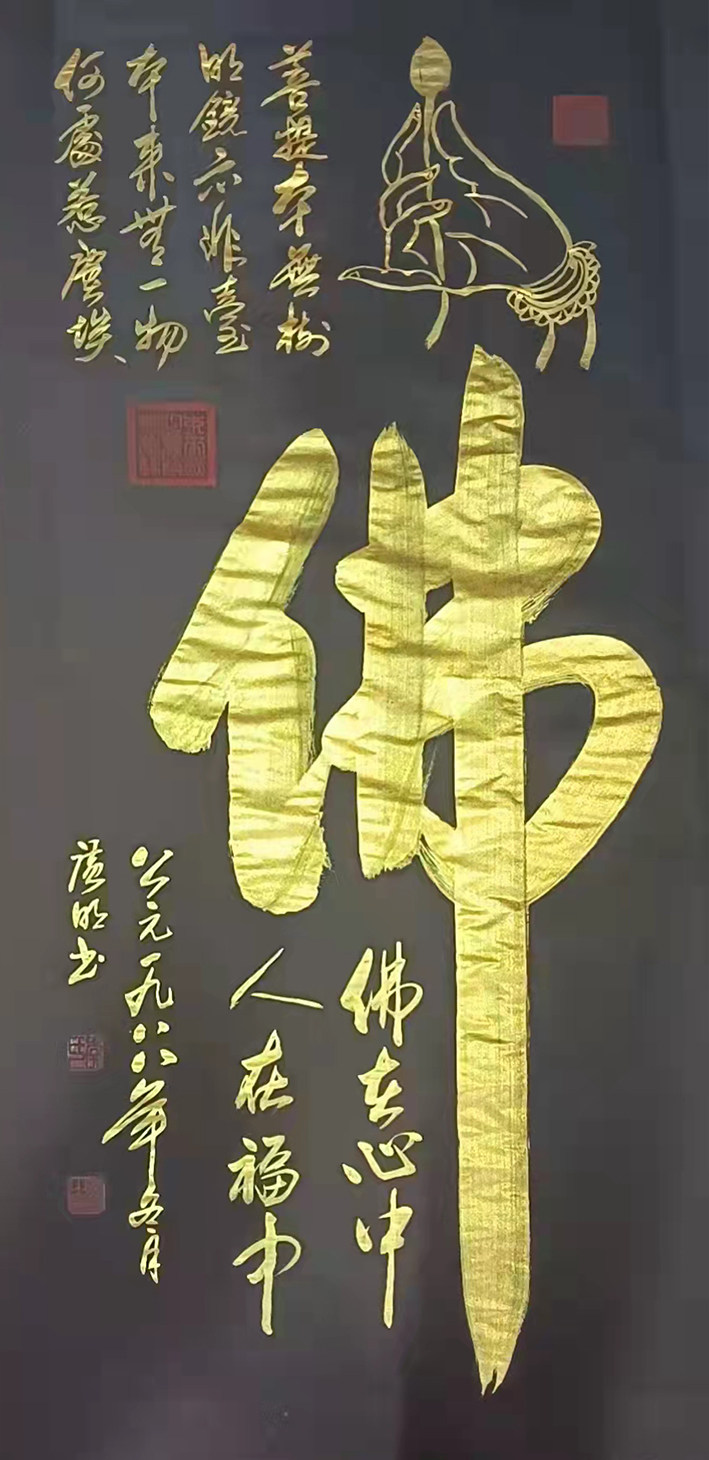 菩提本無樹
明鏡亦非臺
本来無一物
何處惹塵埃
佛
佛在心中
人在福中
公元一九八八年冬月
明书